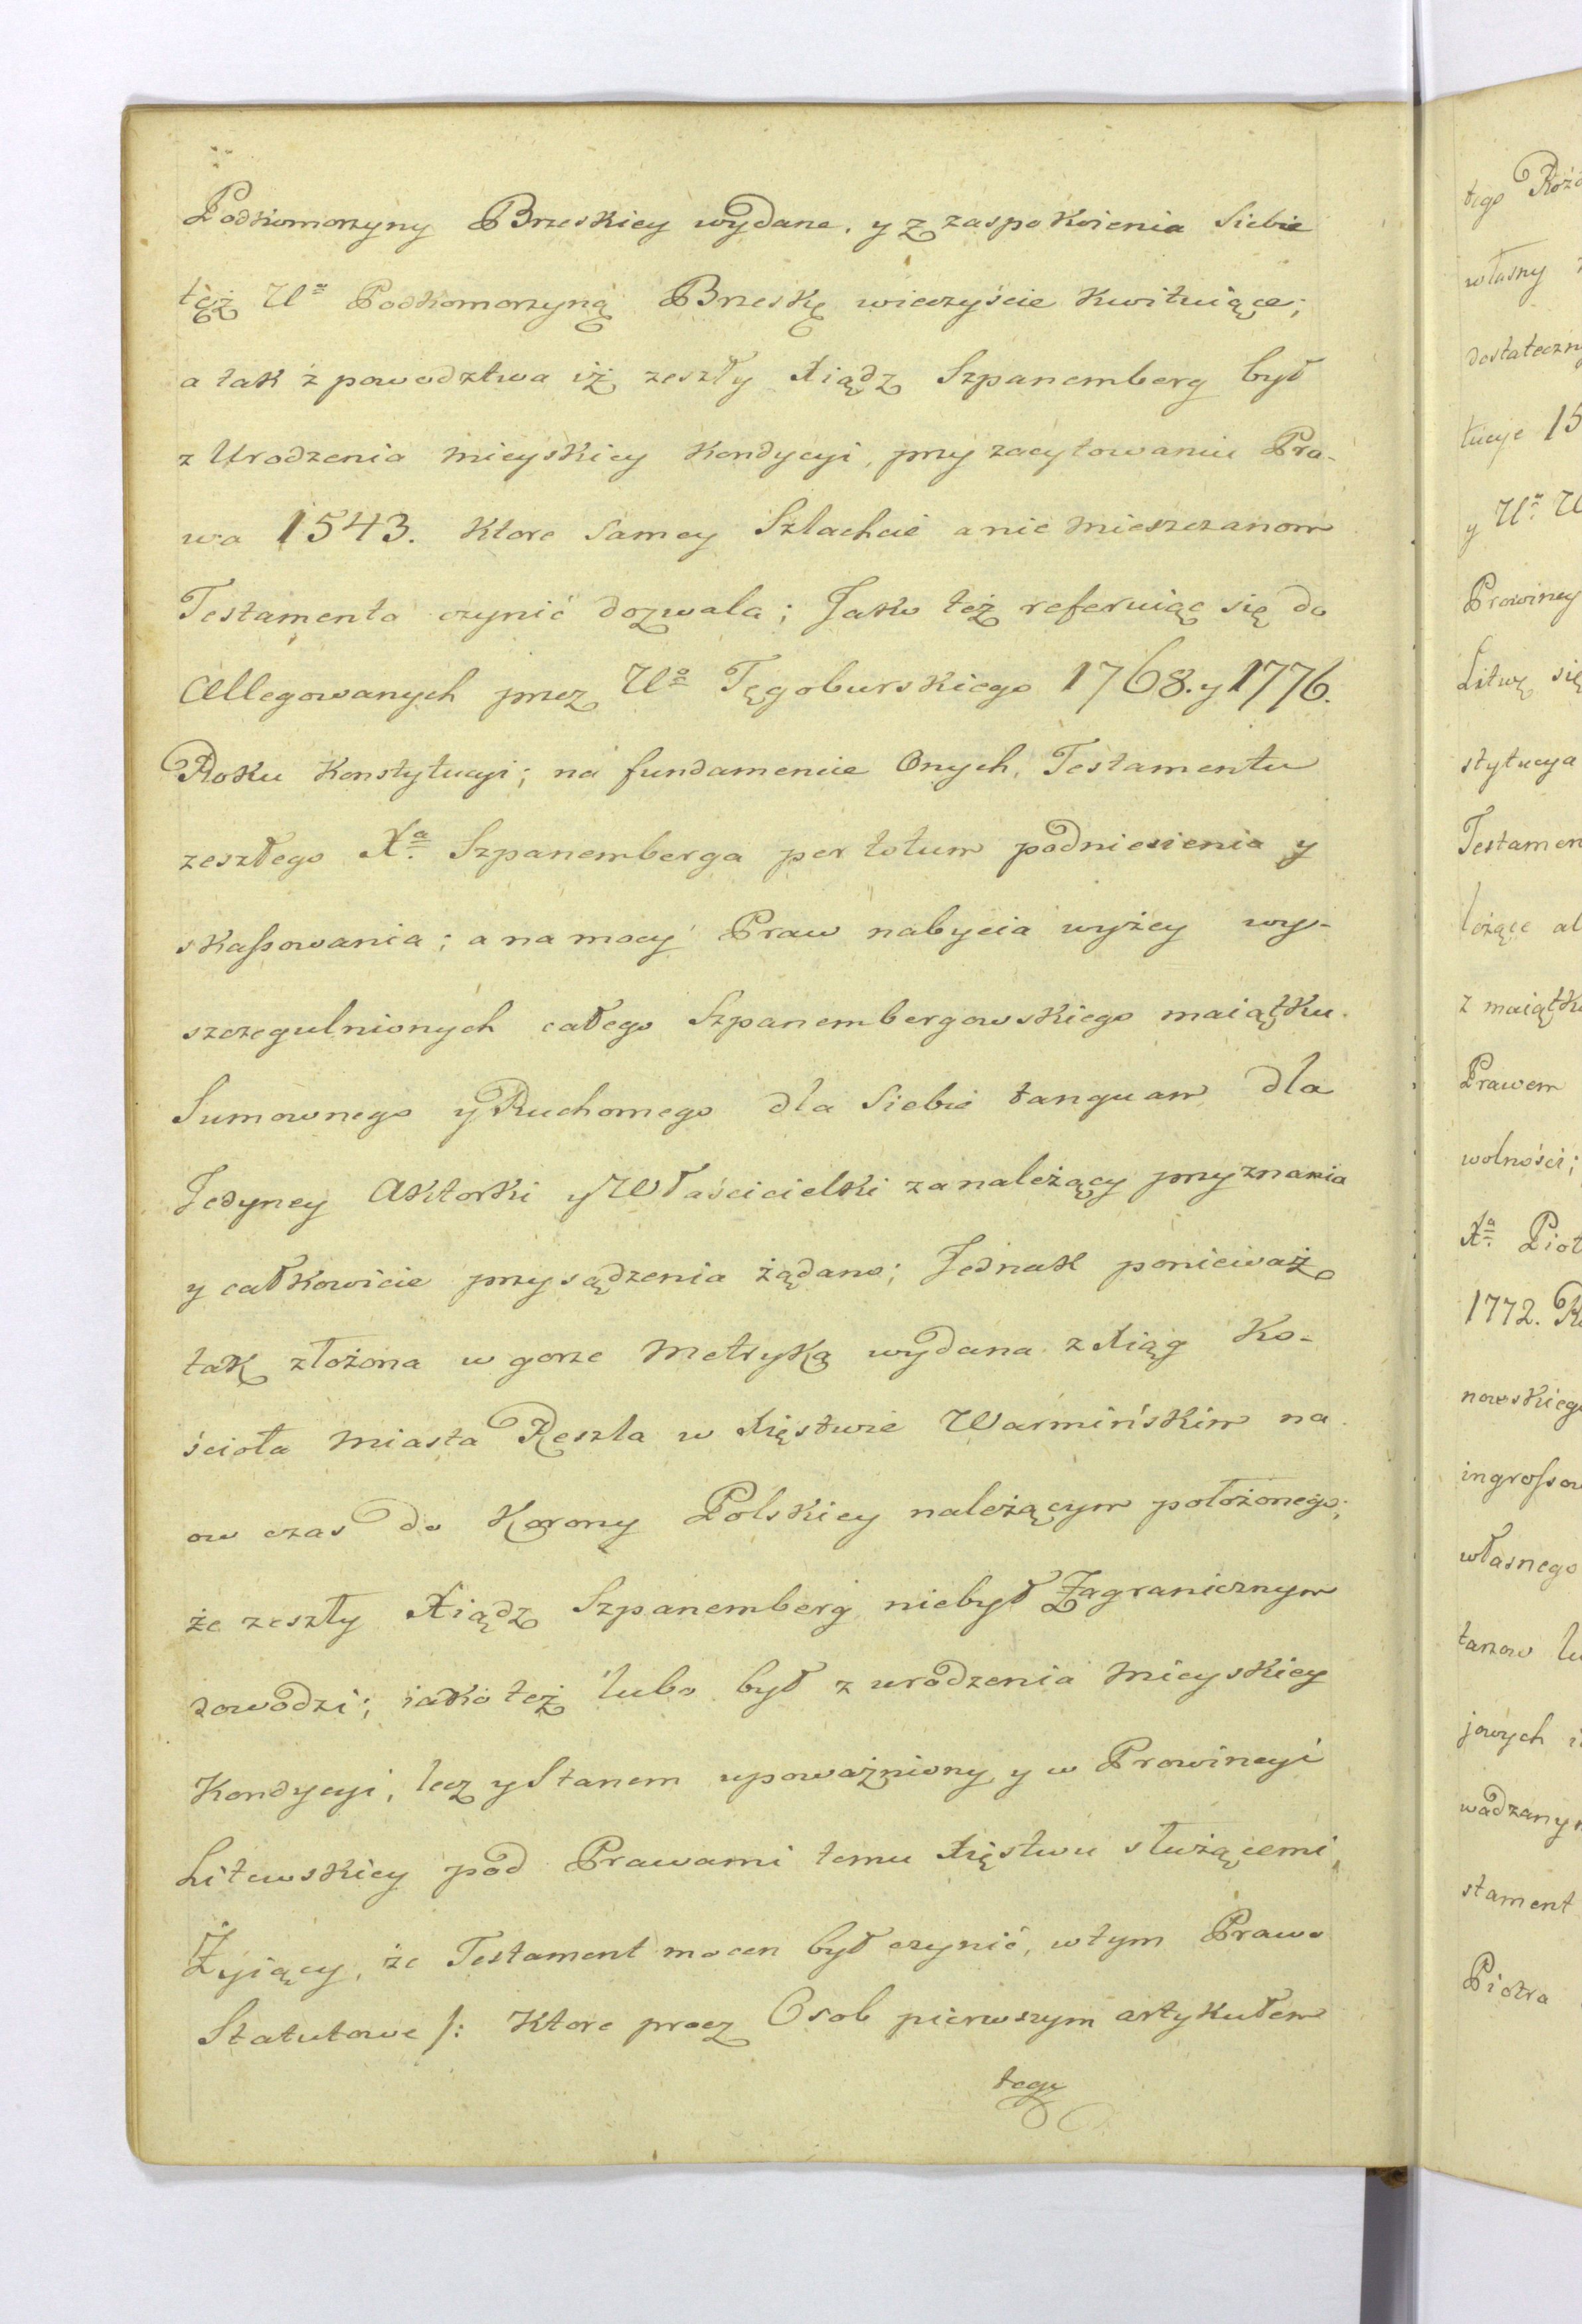 Podkomorzyny Brzeskiey wydane, y z zaspokoienia Siebie
tęż Uª Podkomorzyną Brzeską wieczyście kwituiące;
a tak z powodztwa iż zeszły Xiądz Szpanemberg był
z Urodzenia mieyskiey Kondycyi, przy zacytowaniu Pra-
wa 1543. Ktore samey Szlachcie a nie mieszczanom
Testamenta czynić dozwala; Jako też referuiąc się do
Allegowanych przez Uº Tęgoburskiego 1768. y 1776.
Roku Konstytucyi; na fundamencie Onych, Testamentu
zeszłego Xª Szpanemberga per totum podniesienia y
skassowania; a na mocy Praw nabycia wyżey wy-
szczegulnionych całego Szpanembergowskiego maiątku
Sumownego y Ruchomego dla Siebie tanquam dla
Jedyney Aktorki y Właścicielki za należący przyznania
y całkowicie przysądzenia żądano; Jednak ponieważ
tak złożona w gorze Metryka wydana z Xiąg Ko-
ścioła Miasta Reszla w Xięstwie Warmińskim na
ow czas do Korony Polskiey należącym położonego;
że zeszły Xiądz Szpanemberg niebył Zagranicznym
dowodzi; iako też lubo był z urodzenia Mieyskiey
Kondycyi, lecz y Stanem upoważniony y w Prowincyi
Litewskiey pod Prawami temu Xięstwu służącemi
Żyiący, że Testament mocen był czynić, w tym Prawo
Statutowe /: Ktore procz Osob pierwszym artykułem
tego
tego
własny
dostateczn
tucye 15
y Uª U
Prowincy
Litwy się
stytucya
Testamen
lożące al
z maiątk
Prawem
wolności;
Xª Piot
1772. R
nowskieg
ingrossow
własnego
tanow lu
jowych i
wadzany
stament
Piotra